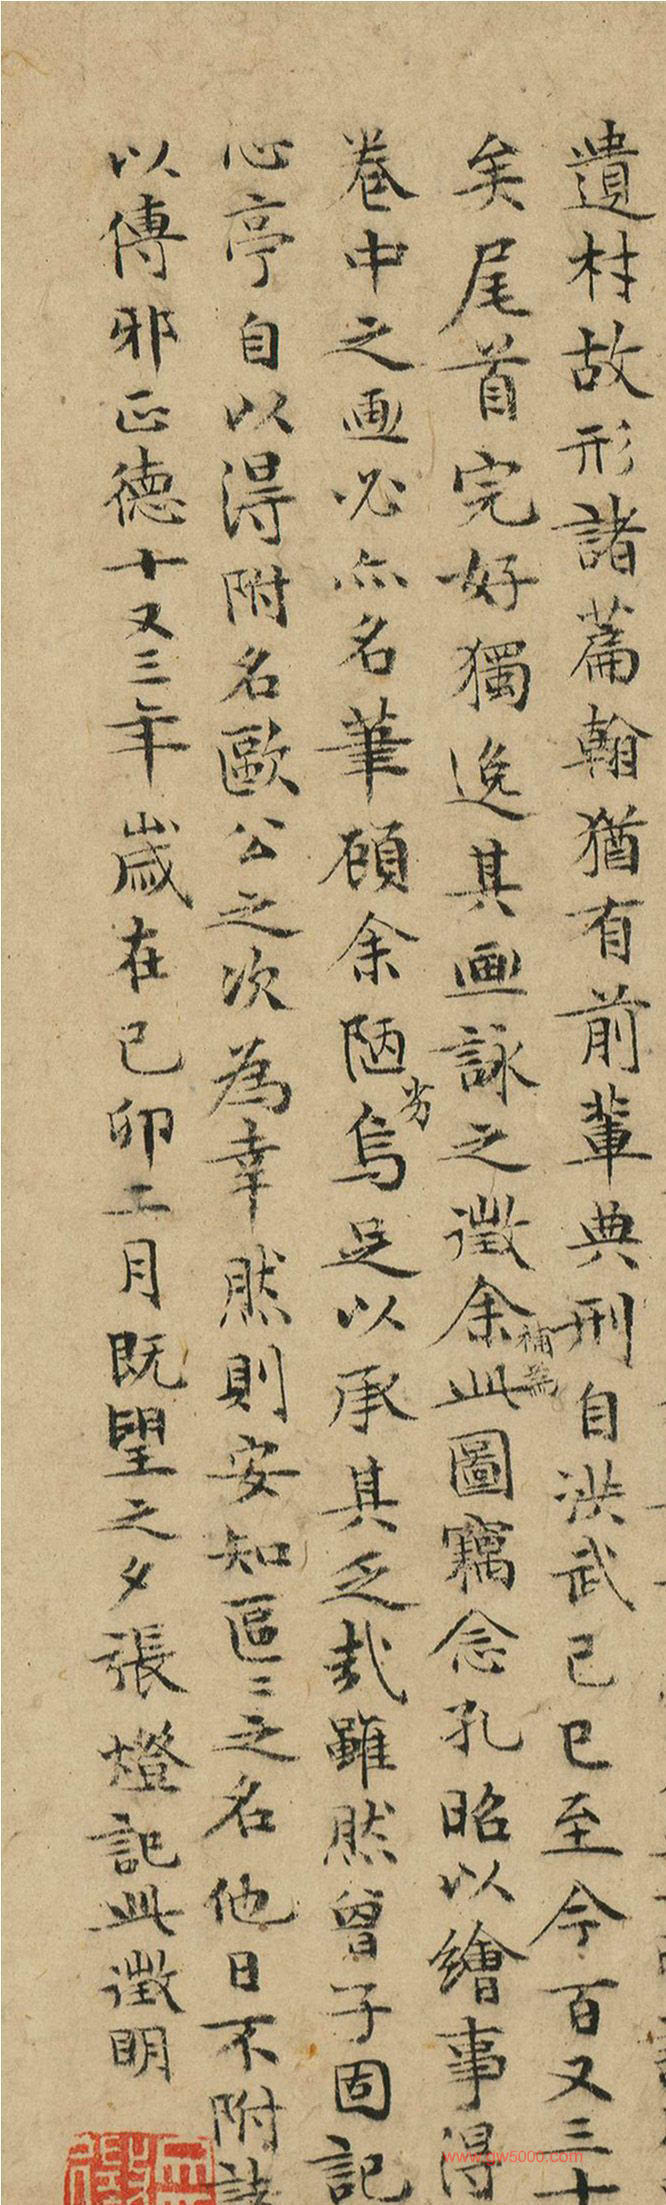 遺村故形諸篇翰猶有前輩典刑自洪武己巳至今百又三十
矣尾首完好獨逸其画詠之徵余補為此圖竊念孔昭以繪事得
卷中之画必亦名筆顧余陋劣烏足以承其乏哉雖然曾子固記
心亭自以得附名歐公之次為幸然則安知區〻之名他日不附諸
以傳邪正德十又三年歲在己卯二月既望之夕張燈記此徵明
www.gw5000.com